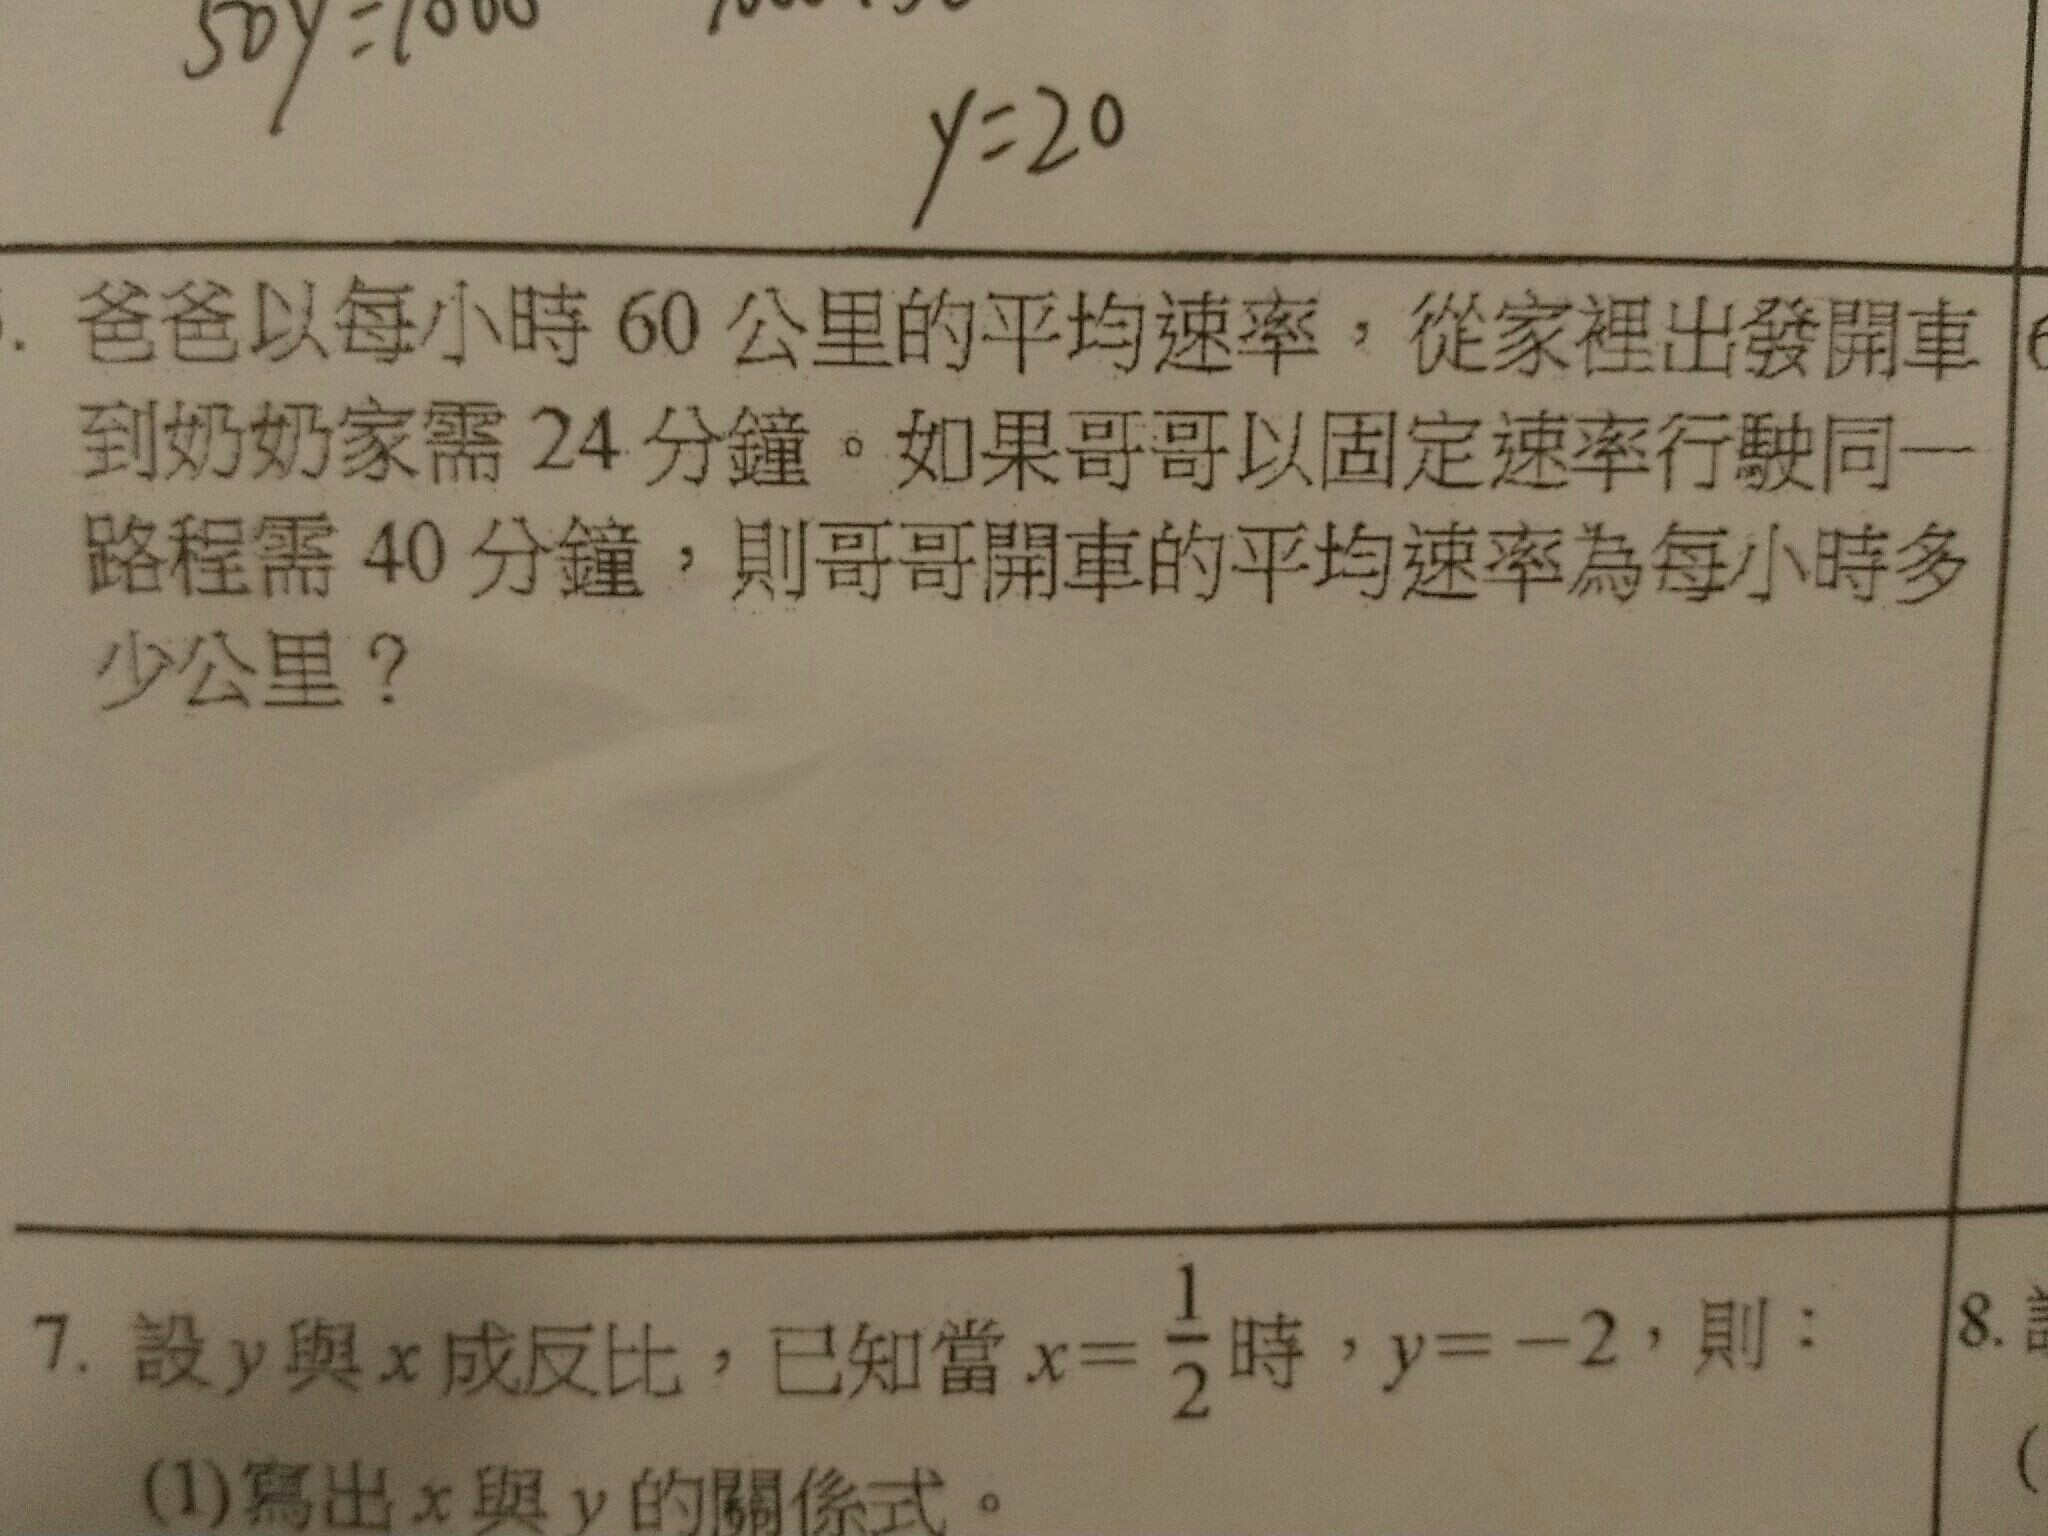 50y=1000
y=20
爸爸以每小時 60 公里的平均速率，從家裡出發開車
到奶奶家需 24 分鐘。如果哥哥以固定速率行駛同一
路程需 40 分鐘，則哥哥開車的平均速率為每小時多
少公里？
7. 設 y 與 x 成反比，已知當 x= 1/2 時，y=−2，則：
8.
(1)寫出 x 與 y 的關係式。